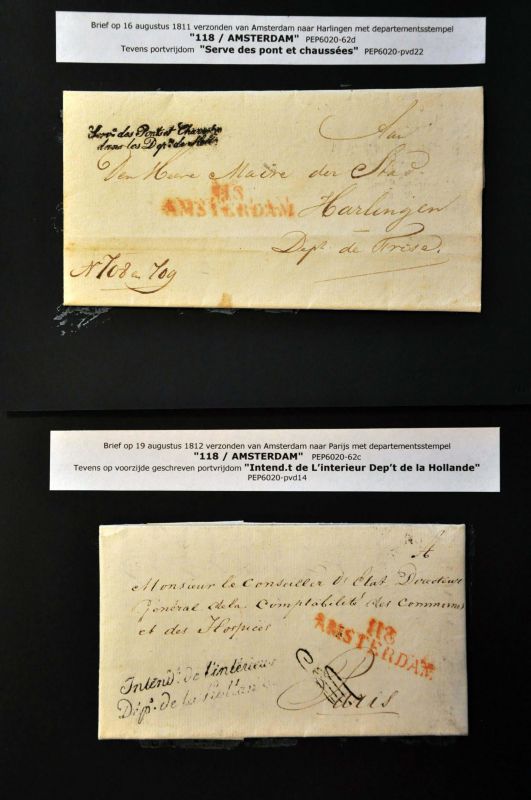 Brief op 16 augustus 1811 verzonden van Amsterdam naar Harlingen met departementsstempel
"118 / AMSTERDAM" PEP6020-62d
Tevens portvrijdom "Serve des pont et chaussées" PEP6020-pvd22
Serv.ce des Ponts et Chaussées
dans les Dep.ts de Holl.
Aan
Den Heere Maire der Stad
118
AMSTERDAM
Harlingen
Dept. de Frise.
N 708 en 709
Brief op 19 augustus 1812 verzonden van Amsterdam naar Parijs met departementsstempel
"118 / AMSTERDAM" PEP6020-62c
Tevens op voorzijde geschreven portvrijdom "Intend.t de L'interieur Dep't de la Hollande"
PEP6020-pvd14
A
Monsieur le Conseiller d'Etat Directeur
Général de la Comptabilité des Communes
et des Hospices
118
AMSTERDAM
Intend.t de l'intérieur
Dép.t de la Hollande
Paris